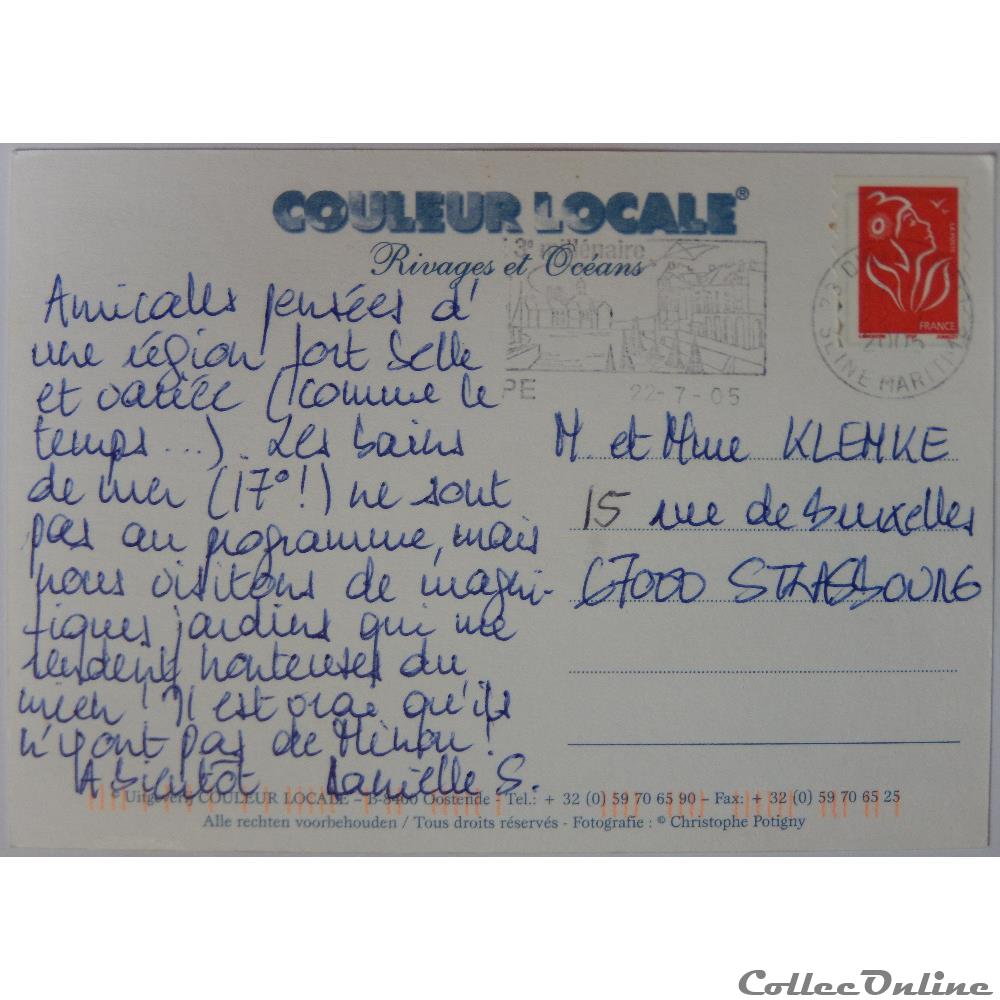 COULEUR LOCALE®
Rivages et Océans
3e millénaire
PE 22-7-05
SEINE MARITIME
2005
LA POSTE
FRANCE
Amicales pensées d'
une région fort belle
et variée (comme le
temps...). Les bains
de mer (17°!) ne sont
pas au programme, mais
nous visitons de magni-
fiques jardins qui me
rendent honteuse du
mien ! Il est vrai qu'ils
n'y ont pas de Minou !
A bientôt Danielle S.
M. et Mme KLEMKE
15 rue de Bruxelles
67000 STRASBOURG
Uitgeverij COULEUR LOCALE – B-8400 Oostende - Tel.: + 32 (0) 59 70 65 90 – Fax: + 32 (0) 59 70 65 25
Alle rechten voorbehouden / Tous droits réservés - Fotografie : © Christophe Potigny
CollecOnline